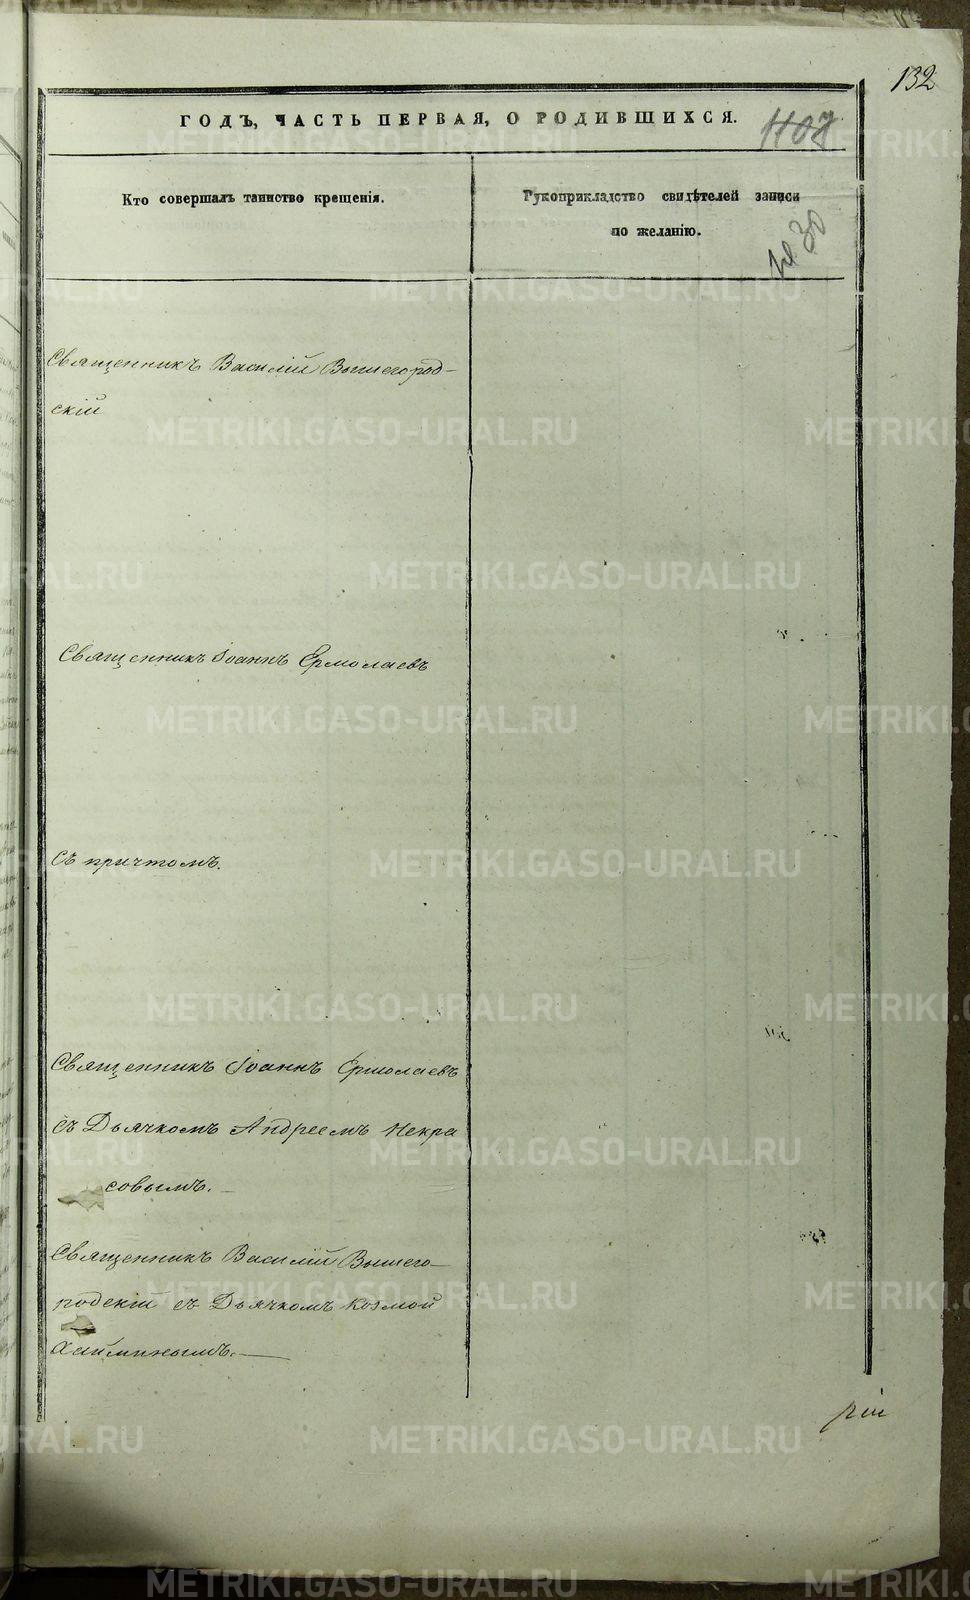 132
ГОДЪ, ЧАСТЬ ПЕРВАЯ, О РОДИВШИХСЯ.
1107
Кто совершалъ таинство крещенія.
Рукоприкладство свидѣтелей записи
по желанію.
30
Священникъ Василій Вышегород-
скій
Священникъ Іоаннъ Ермолаевъ
Съ причтомъ.
Священникъ Іоаннъ Ермолаевъ
съ Дьячкомъ Андреемъ Некра
совымъ.
Священникъ Василій Вышего-
родскій съ Дьячкомъ Козмой
METRIKI.GASO-URAL.RU